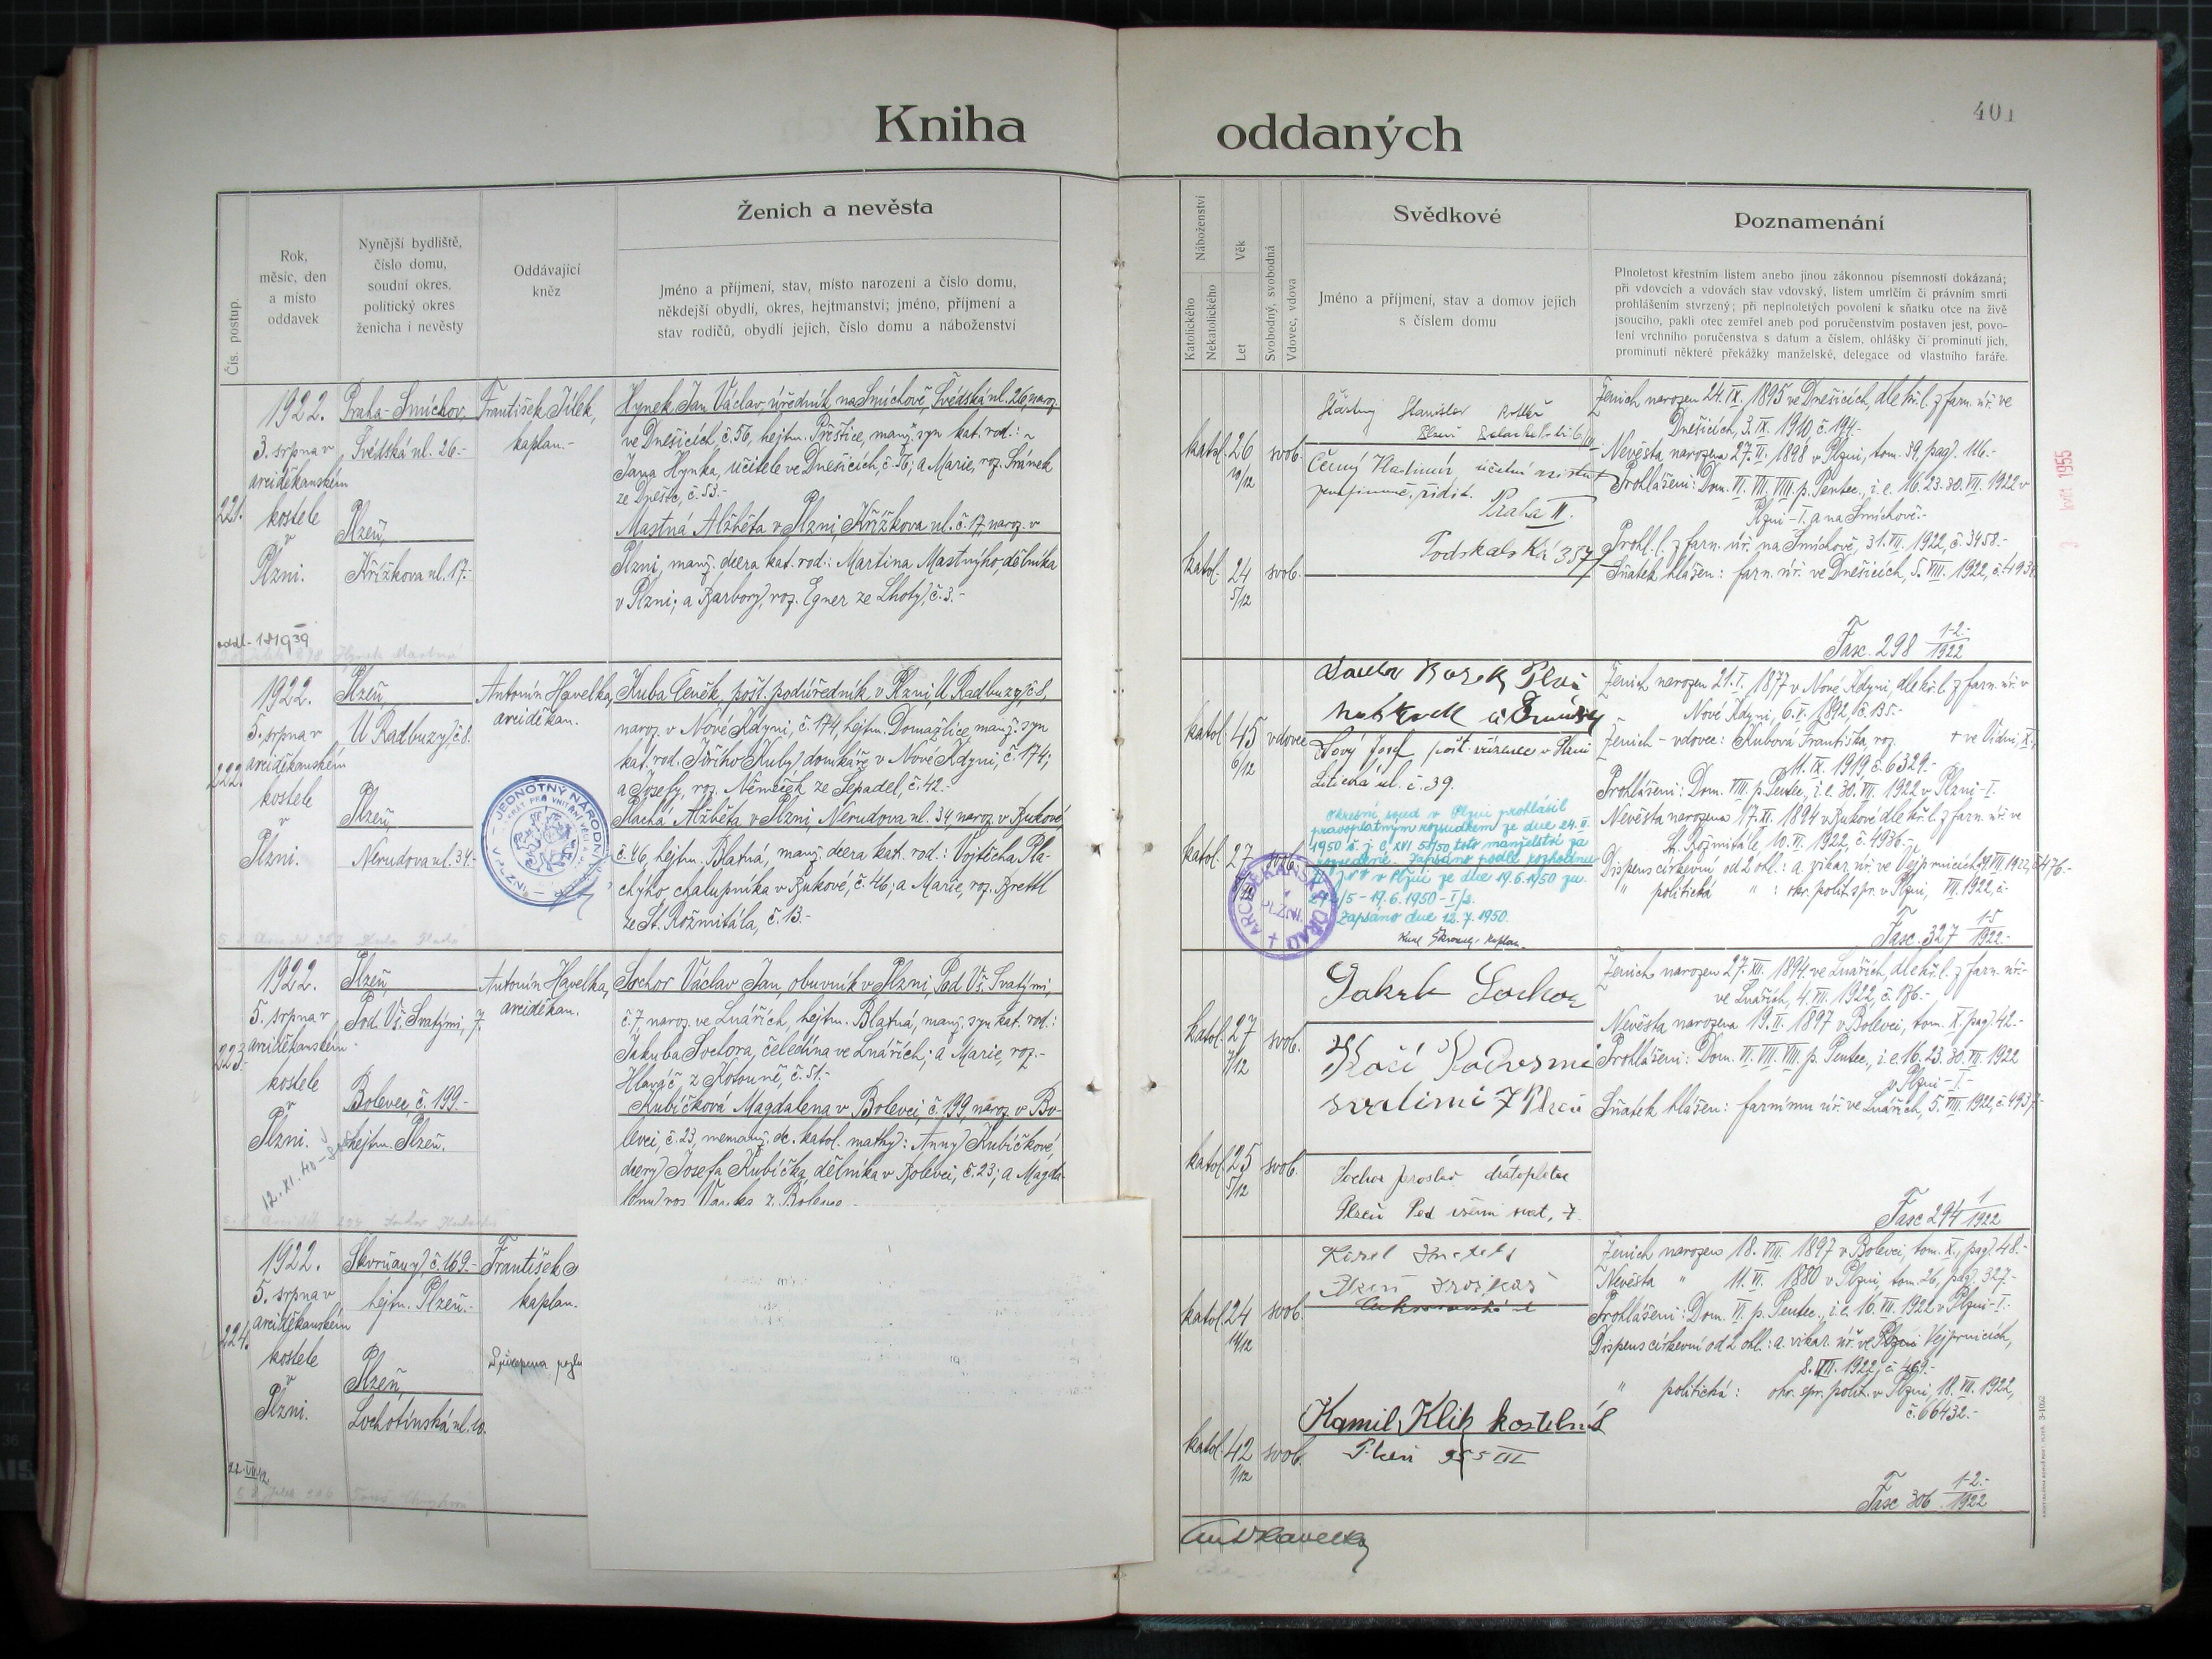 Kniha oddaných
401
Čís. postup.
Rok,
měsíc, den
a místo
oddavek
Nynější bydliště,
číslo domu,
soudní okres,
politický okres
ženicha i nevěsty
Oddávající
kněz
Ženich a nevěsta
Jméno a příjmení, stav, místo narození a číslo domu,
někdejší obydlí, okres, hejtmanství; jméno, příjmení a
stav rodičů, obydlí jejich, číslo domu a náboženství
Náboženství
Katolického
Nekatolického
Věk
Let
Svobodný, svobodná
Vdovec, vdova
Svědkové
Jméno a příjmení, stav a domov jejich
s číslem domu
Poznamenání
Plnoletost křestním listem anebo jinou zákonnou písemností dokázaná;
při vdovcích a vdovách stav vdovský, listem umrlčím či právním smrti
prohlášením stvrzený; při neplnoletých povolení k sňatku otce na živě
jsoucího, pakli otec zemřel aneb pod poručenstvím postaven jest, povo-
lení vrchního poručenstva s datum a číslem, ohlášky či prominutí jich,
prominutí některé překážky manželské, delegace od vlastního faráře.
221.
1922.
3. srpna v
arciděkanském
kostele
v
Plzni.
Praha-Smíchov,
Švédská ul. 26.-
Plzeň,
Křížkova ul. 17.-
František Jílek,
kaplan.-
Hynek Jan Václav, úředník na Smíchově, Švédská ul. 26, naroz.
ve Dnešicích, č. 56, hejtm. Přeštice, manž. syn kat. rod.:
Jana Hynka, učitele ve Dnešicích, č. 56; a Marie, roz. Šránek
ze Dnešic, č. 53.-
Mastná Alžběta v Plzni, Křížkova ul. č. 17, naroz. v
Plzni, manž. dcera kat. rod.: Martina Mastnýho, dělníka
v Plzni; a Barbory, roz. Egner ze Lhoty, č. 3.-
katol. 26 10/12 svob.
katol. 24 5/12 svob.
Šťastný Stanislav
Plzeň
Černý Vladimír účetní
Praha II.
Podskalská 357
Ženich narozen 24. IX. 1895 ve Dnešicích, dle kř. l. z farn. úř. ve
Dnešicích, 3. IX. 1910 č. 194.-
Nevěsta narozena 27. II. 1898 v Plzni, tom. 39, pag. 116.-
Prohlášeni: Dom. VI. VII. VIII. p. Pentec., i. e. 16. 23. 30. VII. 1922 v
Plzni-I. a na Smíchově.-
Prohl. l. z farn. úř. na Smíchově, 31. VII. 1922, č. 3458.-
Sňatek hlášen: farn. úř. ve Dnešicích, 5. VIII. 1922, č.
Fasc. 298 1-2.-/1922
1955
222.
1922.
5. srpna v
arciděkanském
kostele
v
Plzni.
Plzeň,
U Radbuzy č. 8.
Plzeň,
Nerudova ul. 34.-
Antonín Havelka,
arciděkan.
Kuba Čeněk, pošt. podúředník v Plzni, U Radbuzy, č. 8,
naroz. v Nové Kdyni, č. 174, hejtm. Domažlice, manž. syn
kat. rod. Jiřího Kuby, domkáře v Nové Kdyni, č. 174;
a Josefy, roz. Němeček ze Šepadel, č. 42.-
Plachá Alžběta v Plzni, Nerudova ul. 34, naroz. v Bukové,
č. 46, hejtm. Blatná, manž. dcera kat. rod.: Vojtěcha Pla-
chýho, chalupníka v Bukové, č. 46; a Marie, roz. Brettl
ze St. Rožmitála, č. 13.-
JEDNOTNÝ NÁRODNÍ
V PLZNI
katol. 45 6/12 vdovec
katol. 27 svob.
Plzeň
Lový Josef, pošt. zřízenec v Plzni
ul. č. 39.
Okresní soud v Plzni prohlásil
pravoplatným rozsudkem ze dne 24. II.
1950 č. j. C XVI 58/50 toto manželství za
rozvedené. Zapsáno podle rozhodnutí
v Plzni ze dne 19. 6. 1950 zn.
/5 - 19. 6. 1950 - I/2.
Zapsáno dne 12. 7. 1950.
kaplan.
ARCIDĚKANSKÝ ÚŘAD
PLZNI
Ženich narozen 21. I. 1877 v Nové Kdyni, dle kř. l. z farn. úř. v
Nové Kdyni, 6. V. 1892, č. 135.-
Ženich - vdovec: Kubová Františka, roz. + ve Vídni, X.,
11. IX. 1919, č. 6329.-
Prohlášeni: Dom. VIII. p. Pentec., i. e. 30. VII. 1922 v Plzni-I.
Nevěsta narozena 17. XI. 1894 v Bukové dle kř. l. z farn. úř. ve
St. Rožmitále, 10. VI. 1922, č. 4936.-
Dispens církevní od 2 ohl.: a. vikar. úř. ve Vejprnicích, VII. 1922, č. 476.-
" politická " : okr. polit. spr. v Plzni, VII. 1922, č.
Fasc. 327 1-5/1922.-
223.
1922.
5. srpna v
arciděkanském
kostele
v
Plzni.
Plzeň,
Pod Vš. Svatými, 7.
Bolevec č. 199.-
hejtm. Plzeň.
12. XI. 40
Antonín Havelka,
arciděkan.
Sochor Václav Jan, obuvník v Plzni, Pod Vš. Svatými,
č. 7, naroz. ve Lnářích, hejtm. Blatná, manž. syn kat. rod.:
Jakuba Sochora, čeledína ve Lnářích; a Marie, roz.-
Hlaváč z Kotouně, č. 51.-
Kubíčková Magdalena v Bolevci, č. 199, naroz. v Bo-
levci, č. 23, nemanž. dc. katol. matky: Anny Kubíčkové,
dcery Josefa Kubíčka, dělníka v Bolevci, č. 23; a Magda-
katol. 27 7/12 svob.
katol. 25 5/12 svob.
Jakub Sochor
svatimi 7 Plzeň
Sochor Jaroslav
Plzeň Pod všemi svat. 7.
Ženich narozen 27. XII. 1894 ve Lnářích, dle kř. l. z farn. úř.-
ve Lnářích, 4. VII. 1922, č. 176.-
Nevěsta narozena 19. II. 1897 v Bolevci, tom. X. pag. 42.-
Prohlášeni: Dom. VI. VII. VIII. p. Pentec., i. e. 16. 23. 30. VII. 1922
v Plzni-I.-
Sňatek hlášen: farnímu úř. ve Lnářích, 5. VIII. 1922, č. 4937.-
Fasc. 294 1/1922
224.
1922.
5. srpna v
arciděkanském
kostele
v
Plzni.
Skvrňany, č. 169.-
hejtm. Plzeň.-
Plzeň,
Lochotínská ul. 10.
František
kaplan.
katol. 24 11/12 svob.
katol. 42 1/12 svob.
Karel
Plzeň
Kamil Klik kostelník
Plzeň 955 III
Ženich narozen 18. VIII. 1897 v Bolevci, tom. X., pag. 48.-
Nevěsta " 11. VI. 1880 v Plzni, tom. 26, pag. 327.-
Prohlášeni: Dom. VI. p. Pentec., i. e. 16. VII. 1922 v Plzni-I.-
Dispens církevní od 2 ohl.: a. vikar. úř. ve Plzni Vejprnicích,
8. VII. 1922, č. 469.-
" politická: okr. spr. polit. v Plzni, 18. VII. 1922,
č. 66432.-
Fasc. 306 1-2.-/1922
Ant. Havelka